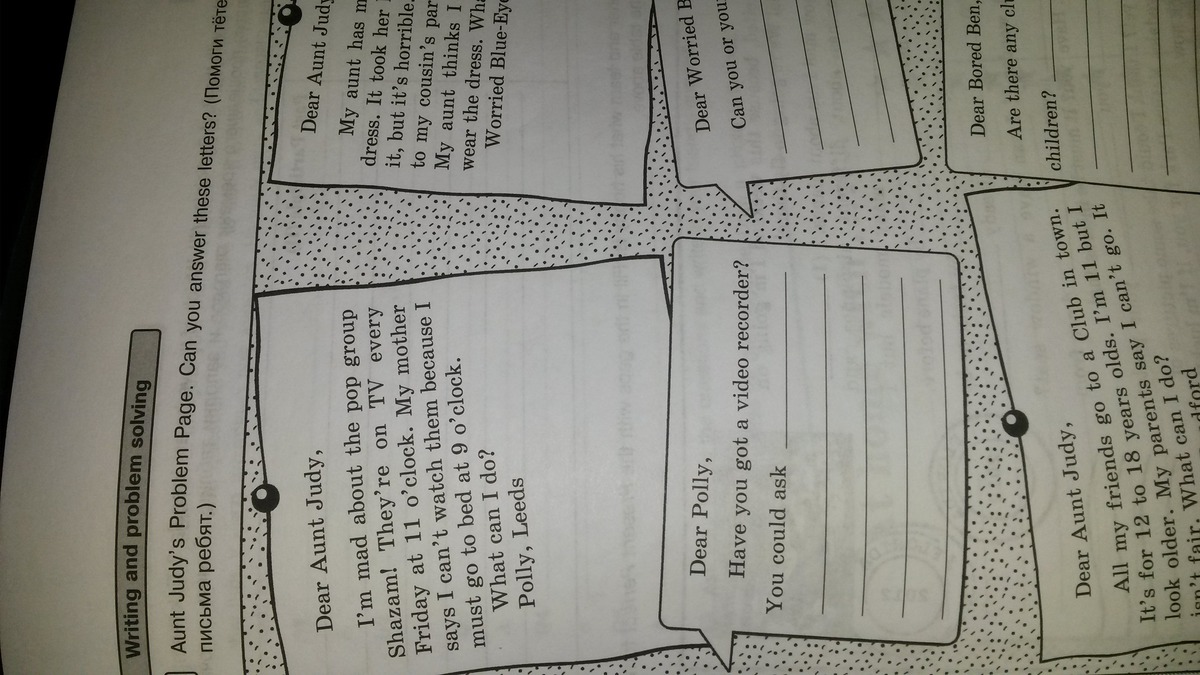 Writing and problem solving
Aunt Judy's Problem Page. Can you answer these letters? (Помоги тёте
письма ребят.)
Dear Aunt Judy,
I'm mad about the pop group
Shazam! They're on TV every
Friday at 11 o'clock. My mother
says I can't watch them because I
must go to bed at 9 o'clock.
What can I do?
Polly, Leeds
Dear Aunt Judy
My aunt has m
dress. It took her
it, but it's horrible.
to my cousin's par
My aunt thinks I
wear the dress. Wha
Worried Blue-Eye
Dear Polly,
Have you got a video recorder?
You could ask
Dear Worried B
Can you or your
Dear Aunt Judy,
All my friends go to a Club in town.
It's for 12 to 18 years olds. I'm 11 but I
look older. My parents say I can't go. It
isn't fair. What can I do?
Dear Bored Ben,
Are there any clu
children?